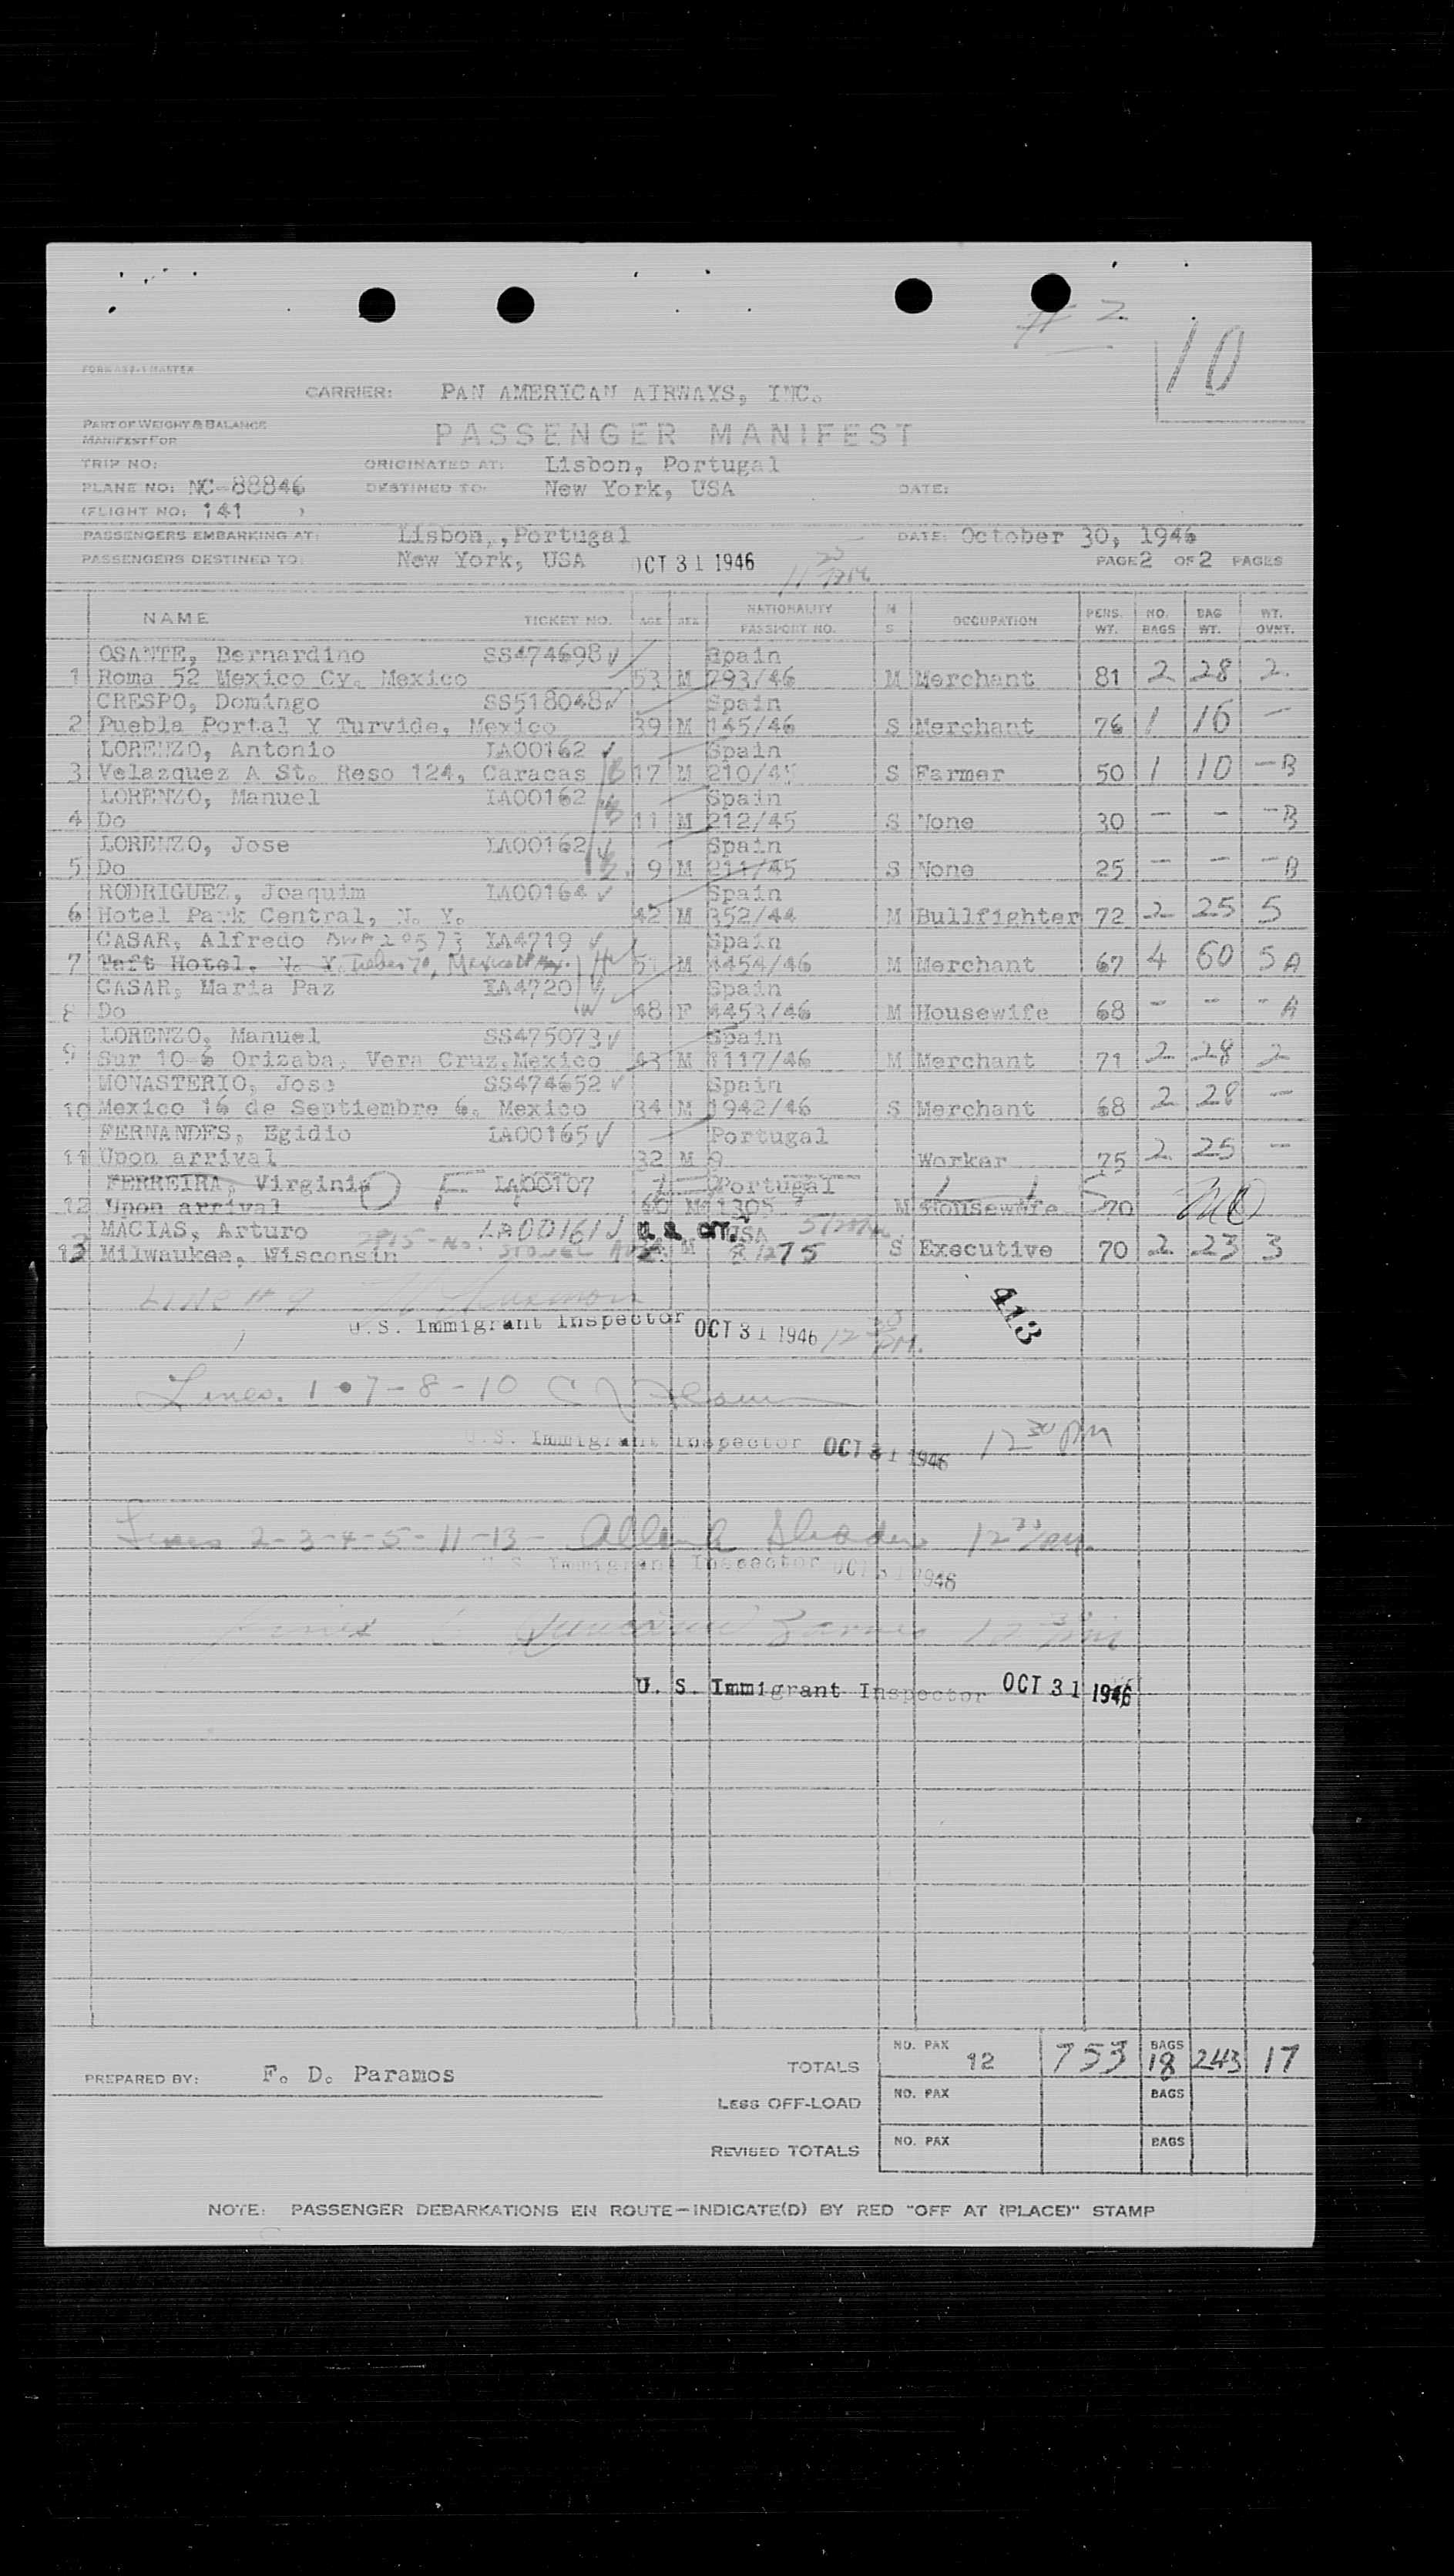 # 2
10
FORM 4S2-1 MASTER
CARRIER: PAN AMERICAN AIRWAYS, INC.
PART OF WEIGHT & BALANCE
MANIFEST FOR
PASSENGER MANIFEST
TRIP NO: ORIGINATED AT: Lisbon, Portugal
PLANE NO: NC-88846 DESTINED TO: New York, USA DATE:
(FLIGHT NO: 141 )
PASSENGERS EMBARKING AT: Lisbon,,Portugal DATE: October 30, 1946
PASSENGERS DESTINED TO: New York, USA OCT 31 1946 PAGE 2 OF 2 PAGES
NAME TICKET NO. AGE SEX NATIONALITY PASSPORT NO. M S OCCUPATION PERS. WT. NO. BAGS BAG WT. WT. OVWT.
OSANTE, Bernardino SS474698 Spain
1 Roma 52 Mexico Cy. Mexico 53 M 293/46 M Merchant 81 2 28 2
CRESPO, Domingo SS518048 Spain
2 Puebla Portal Y Turvide, Mexico 39 M 145/46 S Merchant 76 1 16 -
LORENZO, Antonio IA00162 Spain
3 Velazquez A St. Reso 124, Caracas 17 M 210/45 S Farmer 50 1 10 - B
LORENZO, Manuel IA00162 Spain
4 Do 11 M 212/45 S None 30 - - - B
LORENZO, Jose IA00162 Spain
5 Do 9 M 211/45 S None 25 - - - B
RODRIGUEZ, Joaquim IA00164 Spain
6 Hotel Park Central, N. Y. 42 M 352/44 M Bullfighter 72 2 25 5
CASAR, Alfredo IA4719 Spain
7 Taft Hotel. N. Y. 51 M 4454/46 M Merchant 67 4 60 5 A
CASAR, Maria Paz IA4720 Spain
8 Do 48 F 4453/46 M Housewife 68 - - - A
LORENZO, Manuel SS475073 Spain
9 Sur 10-6 Orizaba, Vera Cruz,Mexico 43 M 1117/46 M Merchant 71 2 28 2
MONASTERIO, Jose SS474652 Spain
10 Mexico 16 de Septiembre 6, Mexico 34 M 1942/46 S Merchant 68 2 28 -
FERNANDES, Egidio IA00165 Portugal
11 Upon arrival 32 M 9 Worker 75 2 25 -
FERREIRA, Virginia IA00107 Portugal
12 Upon arrival 1305 M Housewife 70
MACIAS, Arturo LA00161 USA
13 Milwaukee, Wisconsin M S Executive 70 2 23 3
LINE # 9
U.S. Immigrant Inspector OCT 31 1946 12 30 PM.
413
Lines. 1 - 7 - 8 - 10
U.S. Immigrant Inspector OCT 31 1946 12 30 PM
Lines 2-3-4-5-11-13-
U.S. Immigrant Inspector OCT 31 1946
U. S. Immigrant Inspector OCT 31 1946
PREPARED BY: F. D. Paramos
TOTALS NO. PAX 12 753 BAGS 18 243 17
LESS OFF-LOAD NO. PAX BAGS
REVISED TOTALS NO. PAX BAGS
NOTE: PASSENGER DEBARKATIONS EN ROUTE—INDICATE(D) BY RED "OFF AT (PLACE)" STAMP